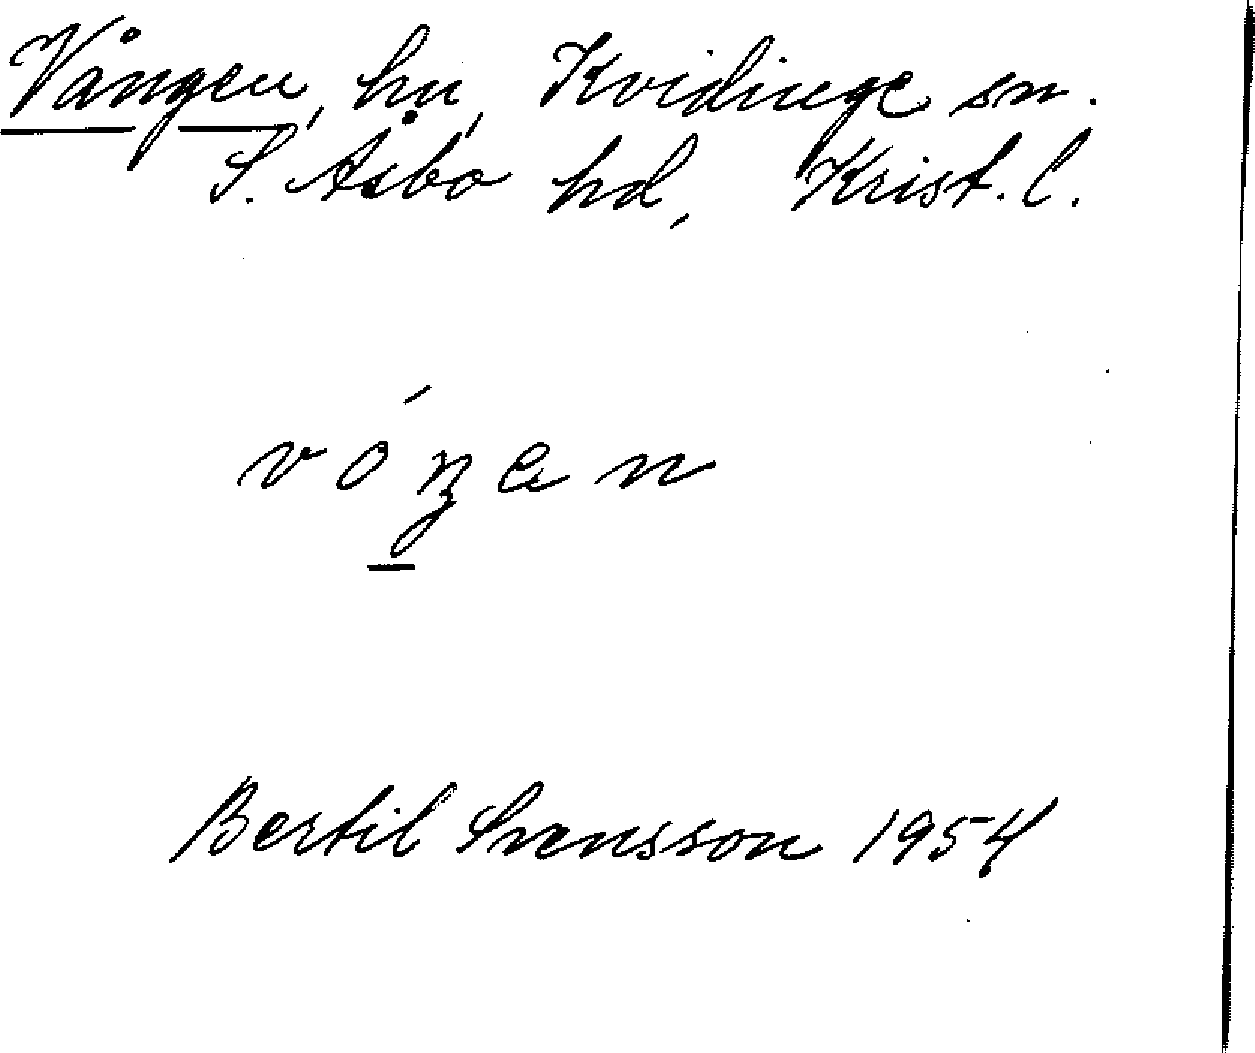 Vången, hn, Kvidinge sn.
S. Åsbo hd, Krist. l.
vóŋen
Bertil Svensson 1954